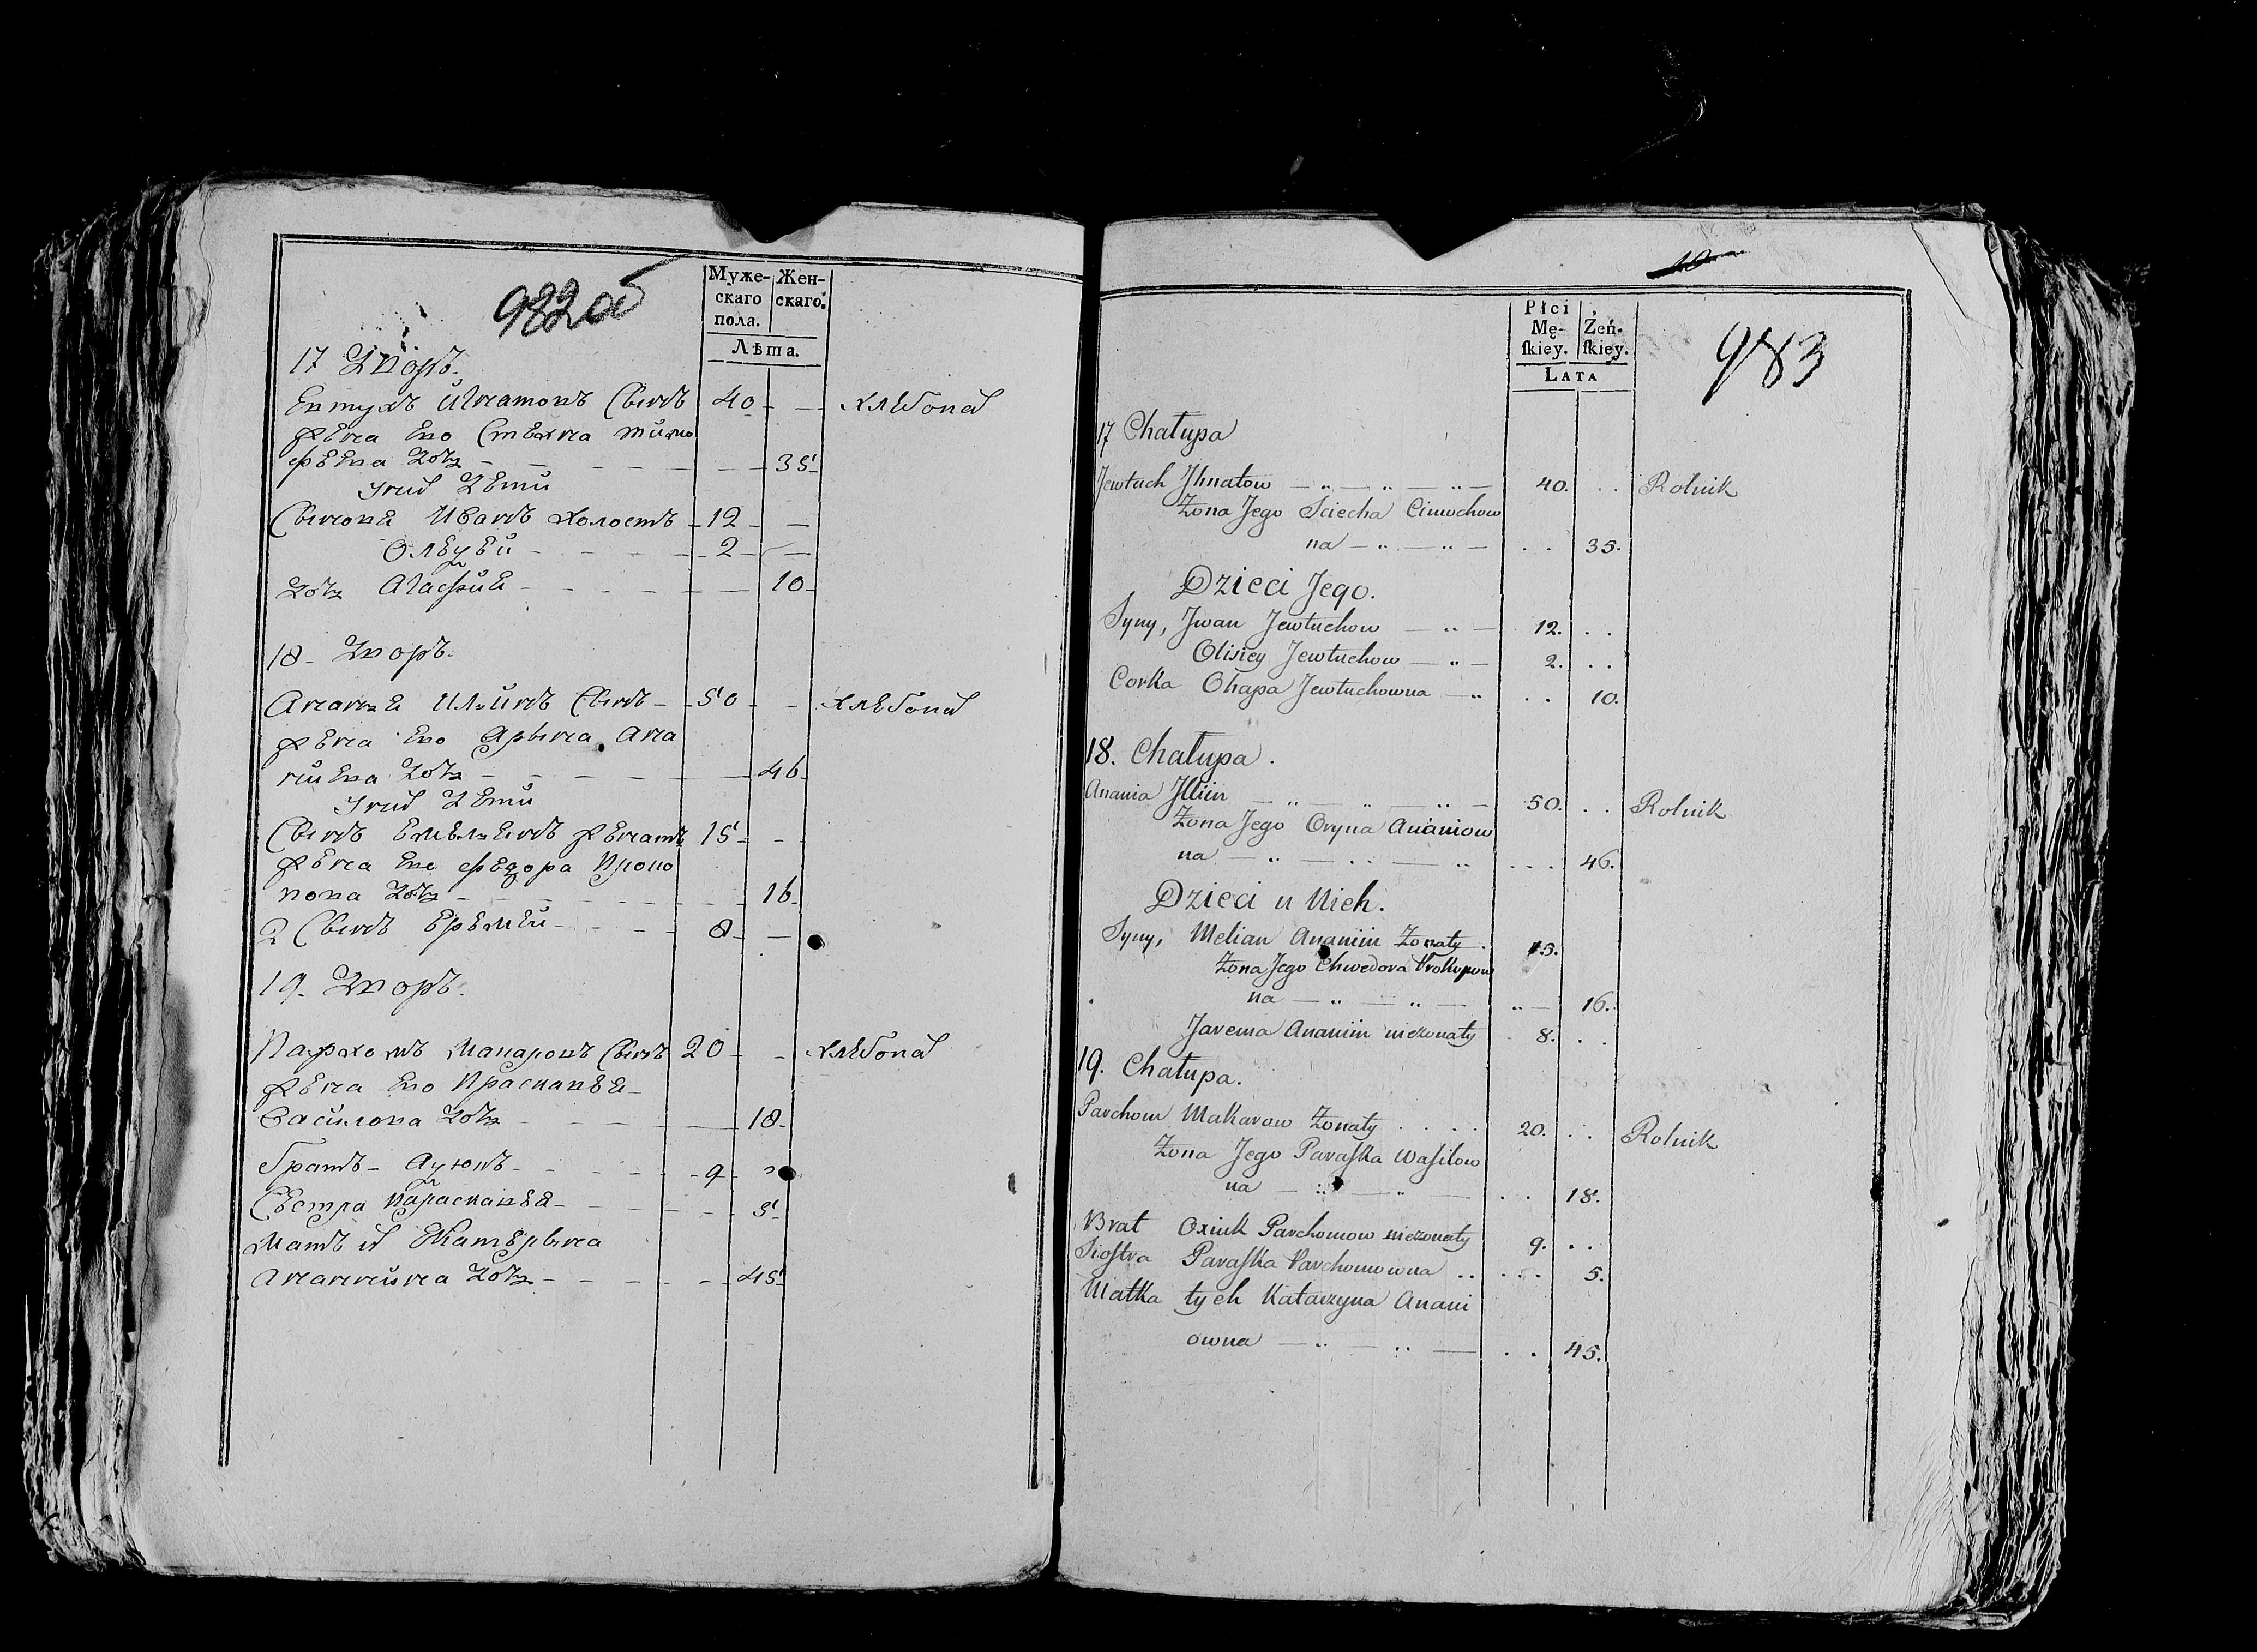 982об
Муже-
скаго
пола.
Жен-
скаго.
Лѣта.
17 Дворъ.
Евтухъ Игнатовъ Сынъ 40 хлѣбопа
Жена Его Стехна Тимо
фѣева дочь 35
Ихъ дети
Сыновя Иванъ холостъ 12
Олѣѯей 2
дочь Агафия 10
18 Дворъ.
Ананья Ильинъ Сынъ 50 хлѣбопа
Жена Его Арына Ана
ниева дочь 46
Ихъ дети
Сынъ Емельянъ женатъ 15
Жена Его Федора Проко
пова дочь 16
2 Сынъ Еремей 8
19. Дворъ.
Пархомъ Макаровъ Сынъ 20 хлѣбопа
Жена Его Прасковея
Василова дочь 18
братъ 9
Сестра Параскавея 5
Мать их Екатерына
Ананина дочь 45
10
983
Płci
Mę-
ſkiey.
Żeń-
ſkiey.
LATA
17 Chałupa
Jewtuch Jhnatow 40. Rolnik
Żona Jego Sciecha Cimochow
na 35.
Dzieci Jego.
Syny, Jwan Jewtuchow 12.
Olisiey Jewtuchow 2.
Corka Ohapa Jewtuchowna 10.
18. Chałupa.
Anania Jlliin 50. Rolnik
Żona Jego Oryna Ananiow
na 46.
Dzieci u Nich.
Syny, Melian Ananiin Żonaty 15.
Żona Jego Chwedora Prokopow
na 16.
Jarema Ananiin nieżonaty 8.
19. Chałupa.
Parchom Makarow Żonaty 20. Rolnik
Żona Jego Paraſka Waſilow
na 18.
Brat Oxiuk Parchomow nieżonaty 9.
Sioſtra Paraſka Parchomowna 5.
Matka tych Katarzyna Anani
owna 45.